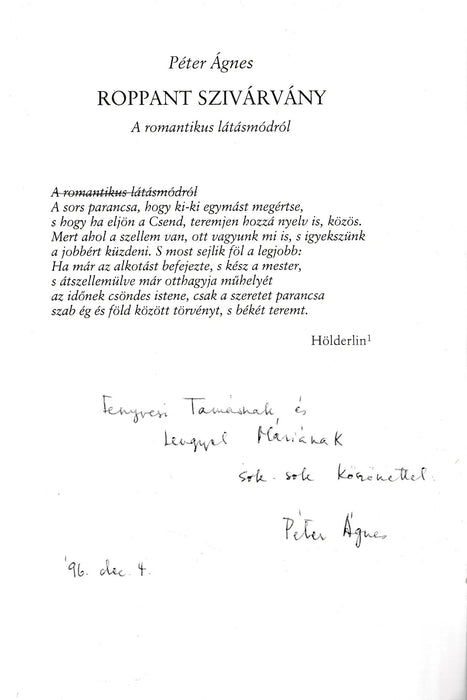 Péter Ágnes
ROPPANT SZIVÁRVÁNY
A romantikus látásmódról
A romantikus látásmódról
A sors parancsa, hogy ki-ki egymást megértse,
s hogy ha eljön a Csend, teremjen hozzá nyelv is, közös.
Mert ahol a szellem van, ott vagyunk mi is, s igyekszünk
a jobbért küzdeni. S most sejlik föl a legjobb:
Ha már az alkotást befejezte, s kész a mester,
s átszellemülve már otthagyja műhelyét
az időnek csöndes istene, csak a szeretet parancsa
szab ég és föld között törvényt, s békét teremt.
Hölderlin¹
Fenyvesi Tamásnak, és
Lengyel Máriának
sok-sok köszönettel.
Péter Ágnes
'96. dec. 4.